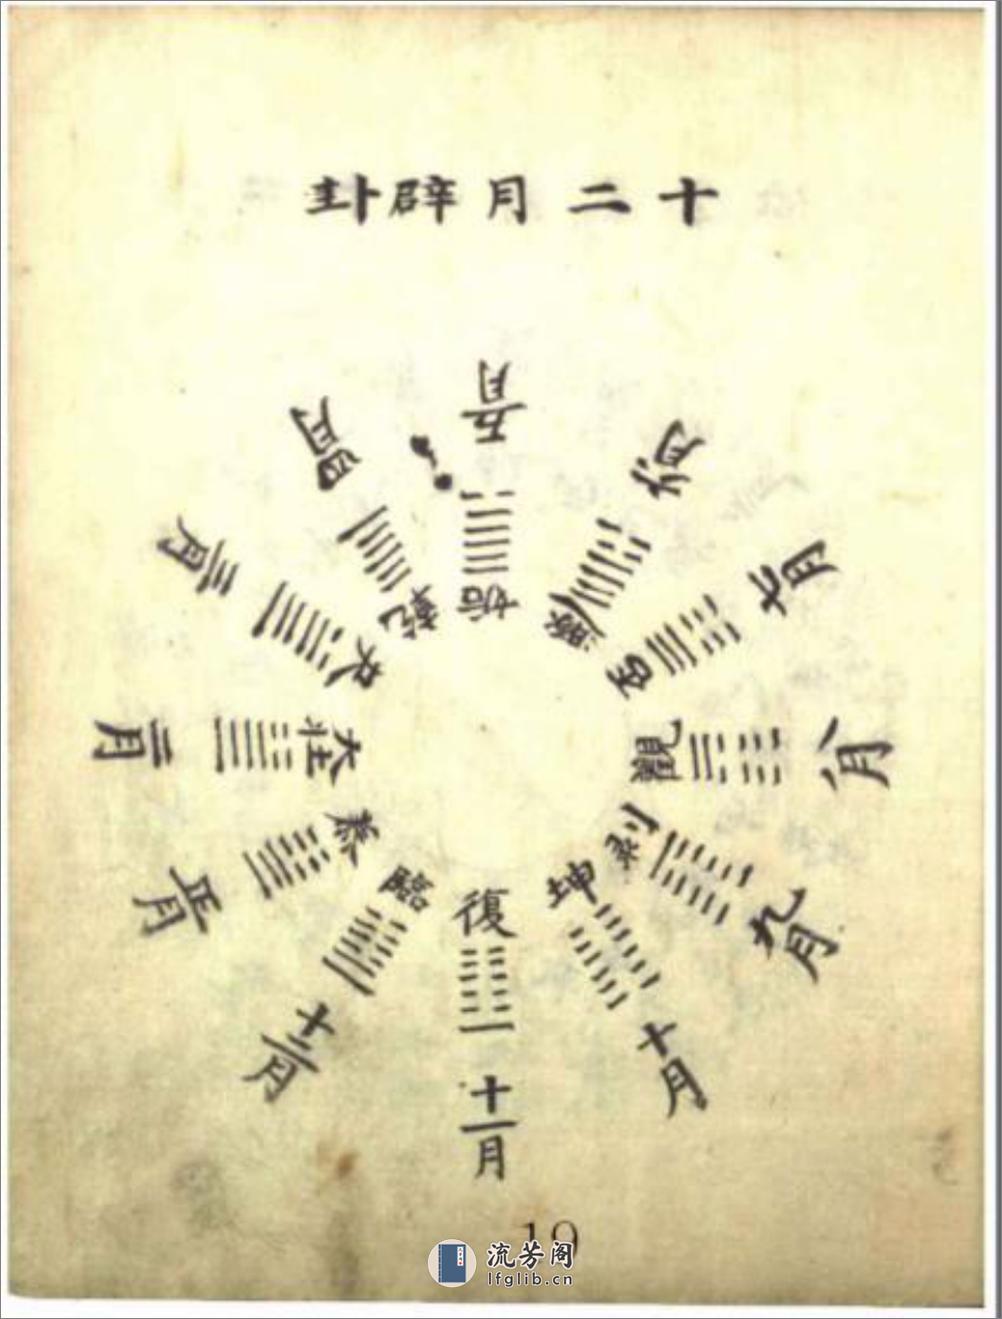 十二月辟卦
復
十一月
臨
十二月
泰
正月
大壯
二月
夬
三月
乾
四月
姤
五月
遯
六月
否
七月
觀
八月
剥
九月
坤
十月
19
流芳阁
lfglib.cn